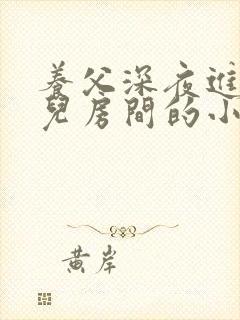 養父深夜進
兒房間的小
黃岸